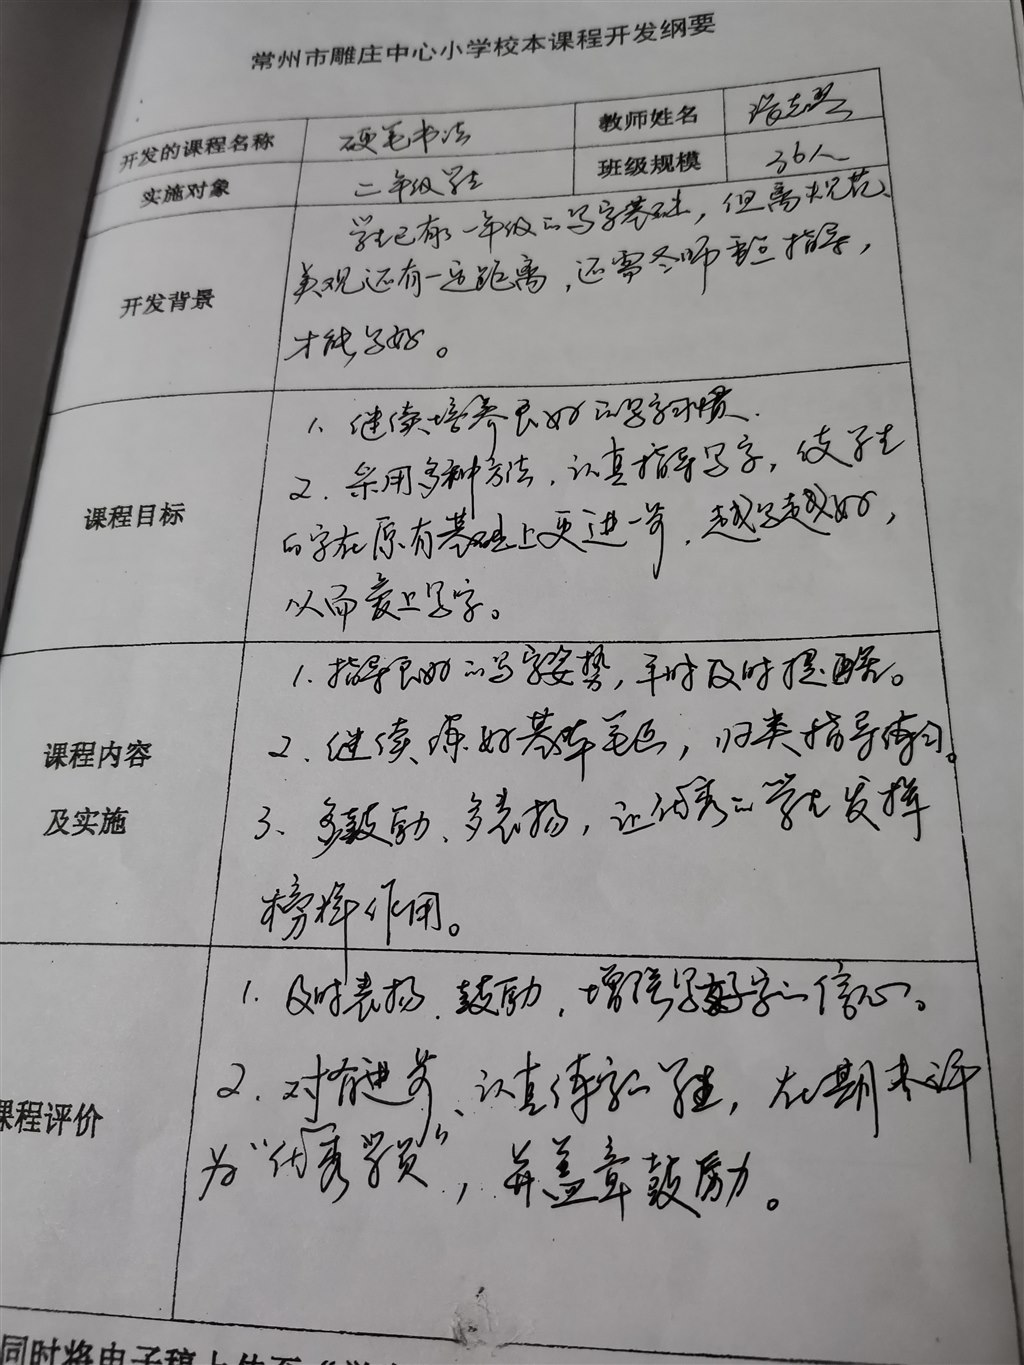 常州市雕庄中心小学校本课程开发纲要
开发的课程名称 硬笔书法 教师姓名
实施对象 二年级学生 班级规模 36人
开发背景
学生已有一年级的写字基础，但离规范、
美观还有一定距离，还需老师重点指导，
才能写好。
课程目标
1、继续培养良好的写字习惯.
2、采用多种方法，认真指导写字，使学生
的字在原有基础上更进一步，越写越好，
从而爱上写字。
课程内容
及实施
1.指导良好的写字姿势，平时及时提醒。
2、继续练好基本笔画，归类指导练习。
3、多鼓励、多表扬，让优秀的学生发挥
榜样作用。
课程评价
1.及时表扬、鼓励，增强写好字的信心。
2.对有进步、认真练字的学生，在期末评
为“优秀学员”，并盖章鼓励。
同时将电子稿上传至